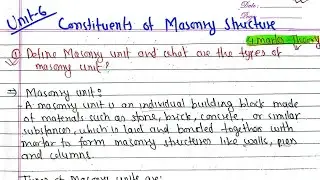 Date:
Unit-6
Constituents of Masonry Structure
4 marks - theory
① Define Masonry unit and what are the types of
masonry unit?
⇒ Masonry unit:
A masonry unit is an individual building block made
of materials such as stone, brick, concrete, or similar
substances, which is laid and bonded together with
mortar to form masonry structures like walls, piers
and columns.
Types of Masonry units are: